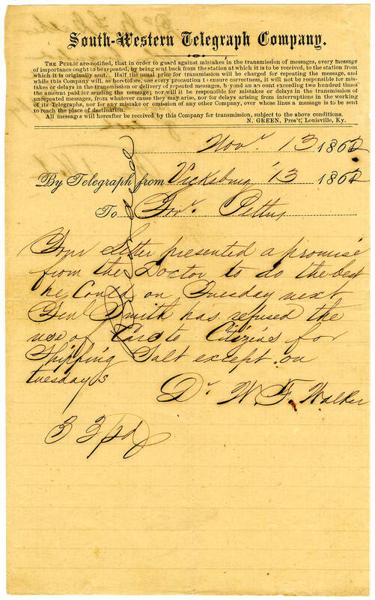 South-Western Telegraph Company.
THE PUBLIC are notified, that in order to guard against mistakes in the transmission of messages, every message
of importance ought to be repeated, by being sent back from the station at which it is to be received, to the station from
which it is originally sent. Half the usual price for transmission will be charged for repeating the message, and
while this Company will, as heretofore, use every precaution to ensure correctness, it will not be responsible for mis-
takes or delays in the transmission or delivery of repeated messages, beyond an amount exceeding two hundred times
the amount paid for sending the message; nor will it be responsible for mistakes or delays in the transmission of
unrepeated messages, from whatever cause they may arise, nor for delays arising from interruptions in the working
of its Telegraphs, nor for any mistake or omission of any other Company, over whose lines a message is to be sent
to reach the place of destination.
All messages will hereafter be received by this Company for transmission, subject to the above conditions.
N. GREEN, Pres't, Louisville, Ky.
Nov. 13 1862
By Telegraph from Vicksburg 13 1862
To Gov. Pettus
Your Letter presented a promise
from the Doctor to do the best
he Could on Tuesday next
Gen Smith has refused the
use of Cars to Citizens for
Shipping Salt except on
tuesdays
Dr W. F. Walker
33 pd